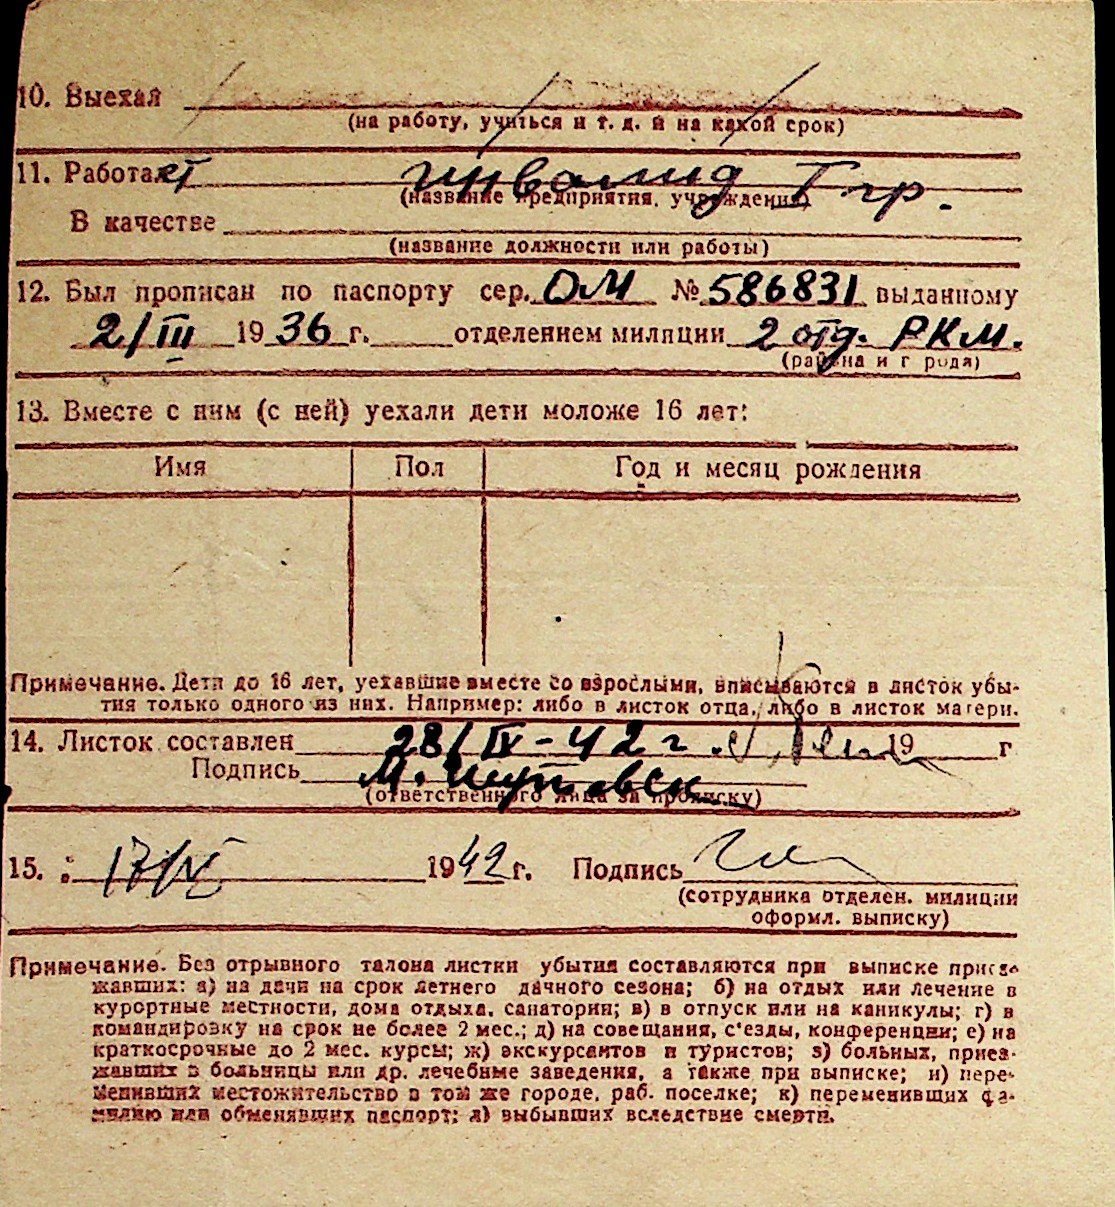 10. Выехал
(на работу, учиться и т. д. и на какой срок)
11. Работает инвалид I гр.
(название предприятия, учреждения)
В качестве
(название должности или работы)
12. Был прописан по паспорту сер. ОМ № 586831 выданному
2/III 1936 г. отделением милиции 2 отд. РКМ.
(района и города)
13. Вместе с ним (с ней) уехали дети моложе 16 лет:
Имя Пол Год и месяц рождения
Примечание. Дети до 16 лет, уехавшие вместе со взрослыми, вписываются в листок убы-
тия только одного из них. Например: либо в листок отца, либо в листок матери.
14. Листок составлен 28/IV-42 г. 19 г
Подпись М.
(ответственного лица за прописку)
15. 17/IV 1942 г. Подпись
(сотрудника отделен. милиции
оформл. выписку)
Примечание. Без отрывного талона листки убытия составляются при выписке приез-
жавших: а) на дачи на срок летнего дачного сезона; б) на отдых или лечение в
курортные местности, дома отдыха, санатории; в) в отпуск или на каникулы; г) в
командировку на срок не более 2 мес.; д) на совещания, с'езды, конференции; е) на
краткосрочные до 2 мес. курсы; ж) экскурсантов и туристов; з) больных, приез-
жавших в больницы или др. лечебные заведения, а также при выписке; и) пере-
менивших местожительство в том же городе, раб. поселке; к) переменивших фа-
милию или обменявших паспорт; л) выбывших вследствие смерти.